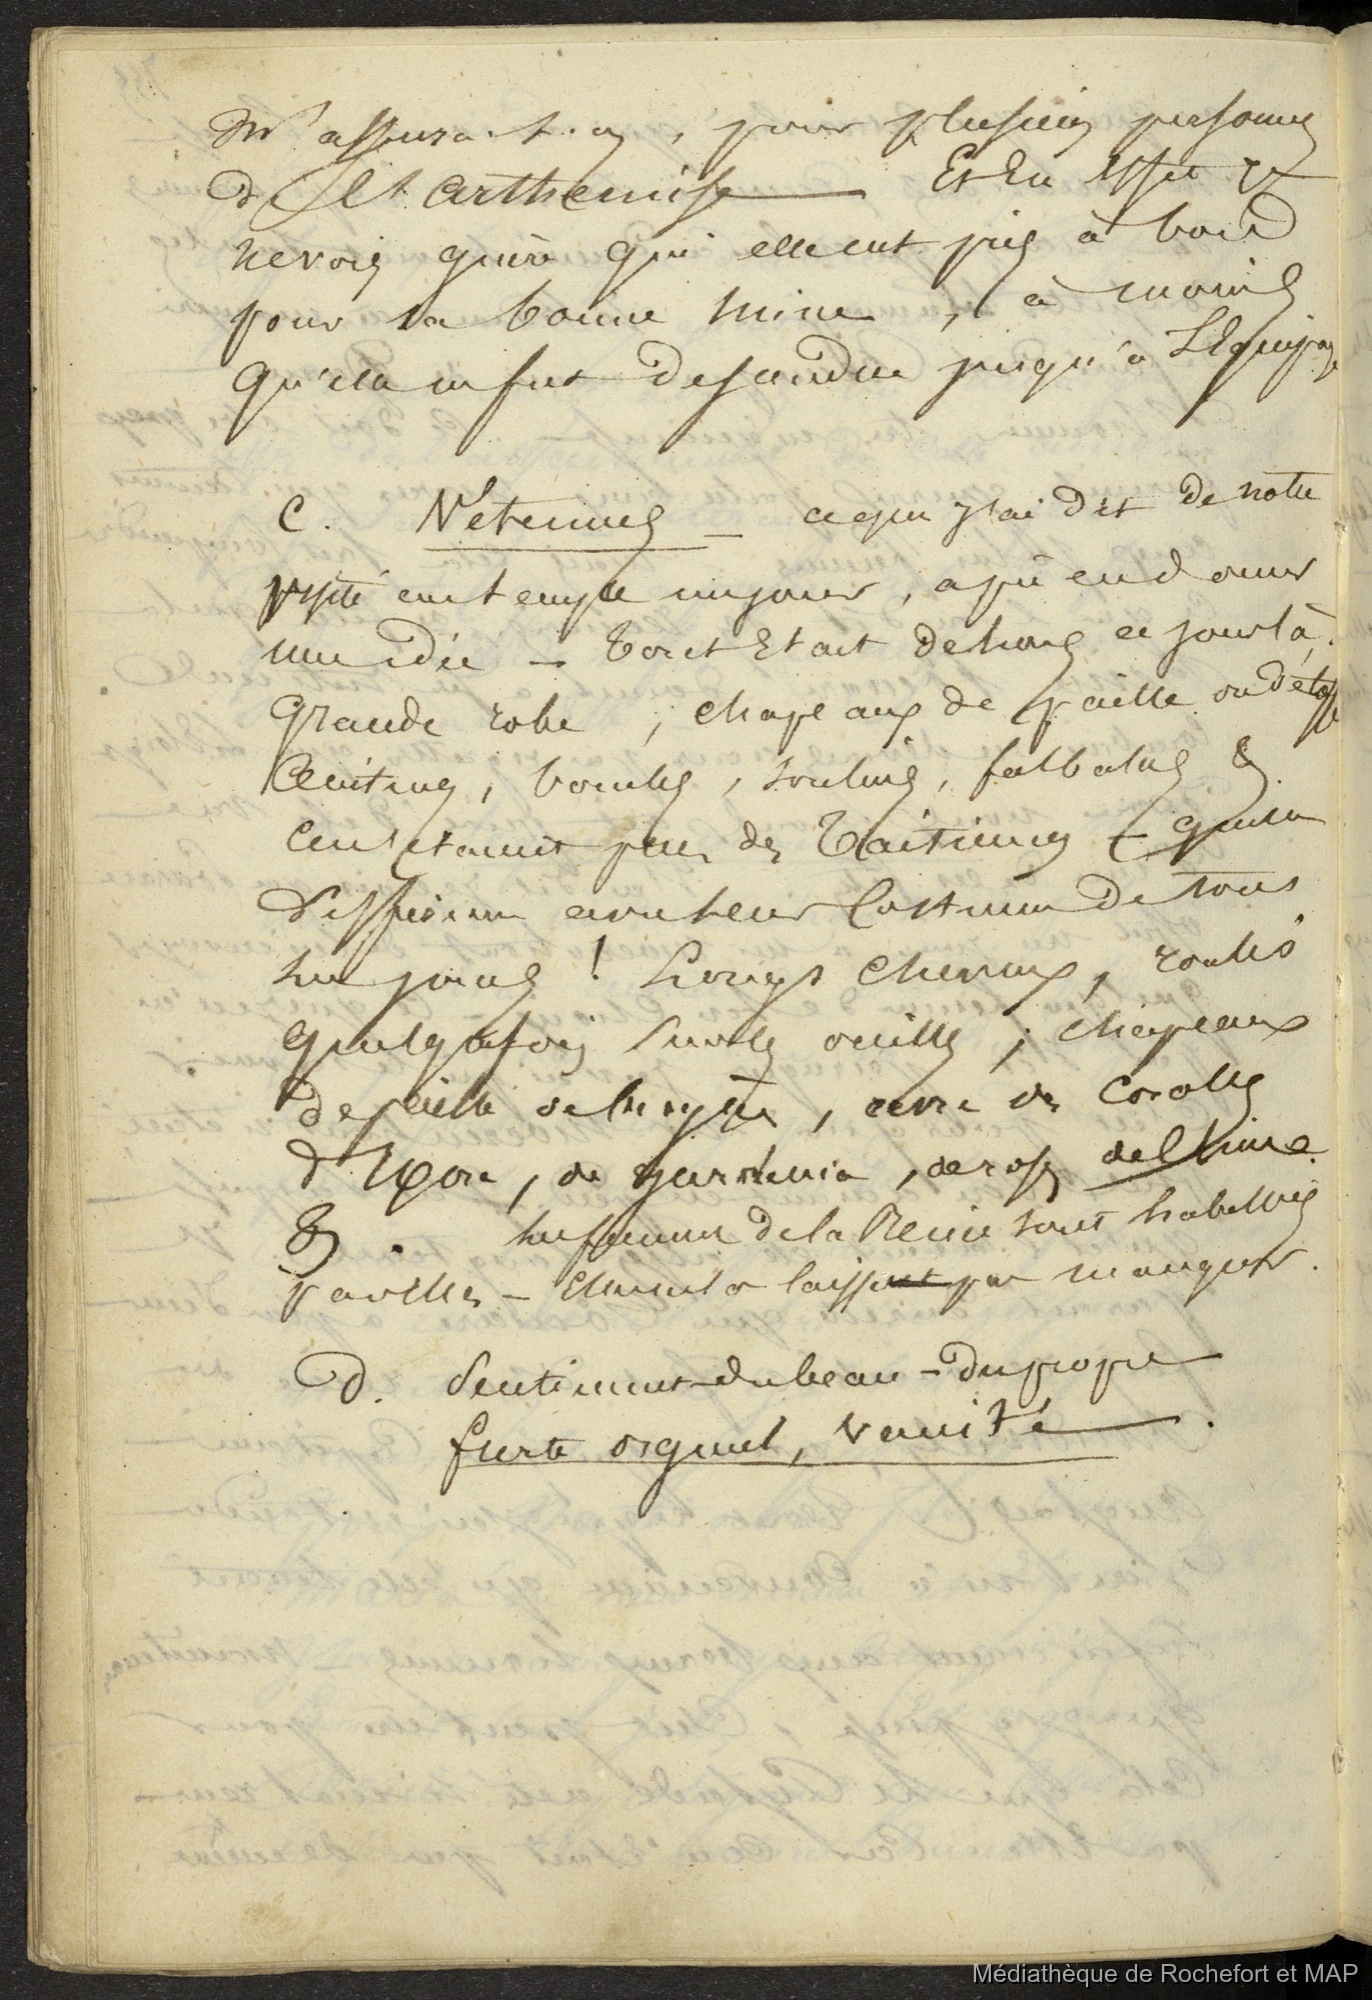 m'assura-t-on, pour plusieurs personnes
de l'Arthémise — Et en effet je
ne vois guère qui elle eut pris à bord
pour sa bonne mine, à moins
qu'ela ne fut descendue jusqu'à l'Equipage
C. Vetemens — ce que j'ai dit de notre
visite au temple un jour, a pu en donner
une idée — tout Etait dehors ce jour là,
grande robe, chapeaux de paille ou d'étoffe
Ceintures, boucles, souliers, falbalas &
Ce n'etaient plus des Taïtiennes — quelle
différence avec leur Costume de tous
les jours ! Longs cheveux, roulés
quelquefois sur les oreilles ; chapeaux
de paille, avec des Corolles
d' de gardenia, de roses de Chine
& . les femmes de la Reine sont habillées
pareilles — laissent pas manquer.
D. Sentiment du beau — du propre
fierté orgueil, vanité .
Médiathèque de Rochefort et MAP